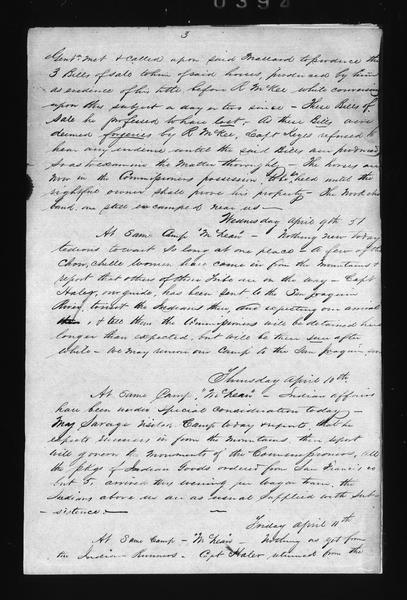 0392
3
Gentn. met & called upon said Mallard to produce the
3 Bills of sale to him of said horses, produced by him
as evidence of his title before R McKee while conversing
upon this subject a day or two since - These Bills of
sale he professed to have lost. As these Bills were
deemed forgeries by R McKee, Capt Keyes refused to
hear any evidence until the said Bills are produced
so as to examine the Matter thoroughly - The horses are
now in the Commissioners possession to be held until the
rightful owner shall prove his property - The
band are still encamped near us -
Wednesday April 9th 51
At Same Camp "McKean" - Nothing new to day
tedious to wait so long at one place - A few of the
Chow chille women have come in from the Mountains &
report that others of their tribe are on the way - Capt
Haler, our guide, has been sent to the San Joaquin
River, to visit the Indians there, and expecting our arrival
& tell them the Commissioners will be detained here
longer than expected, but will be there soon after
while - We may remove our Camp to the San Joaquin
Thursday April 10th
At Same Camp, "McKean" - Indian affairs
have been under special consideration today -
Maj Savage visited Camp today & reports, that he
expects runners in from the Mountains, their report
will govern the movements of the Commissioners, all
the pkgs of Indian Goods ordered from San Francisco
but 5, arrived this evening per wagon train, the
Indians above us are as usual supplied with Sub-
-sistence.
Friday April 11th
At Same Camp - McKean - Nothing as yet from
the Indian Runners - Capt Haler returned from the